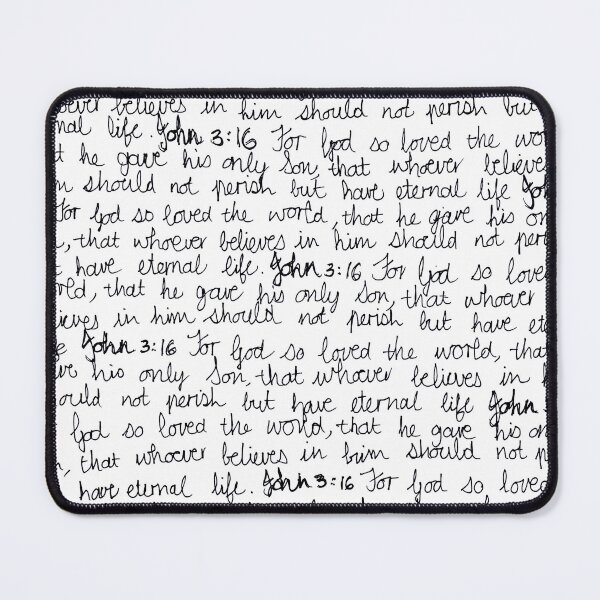 oever believes in him should not perish but
nal life. John 3:16 For God so loved the wor
t he gave his only Son, that whoever believe
n should not perish but have eternal life Joh
For God so loved the world, that he gave his on
, that whoever believes in him should not peri
t have eternal life. John 3:16 For God so love
rld, that he gave his only Son, that whoever
ieves in him should not perish but have ete
e John 3:16 For God so loved the world, that
ve his only Son, that whoever believes in h
ould not perish but have eternal life John
God so loved the world, that he gave his on
, that whoever believes in him should not p
have eternal life. John 3:16 For God so loved